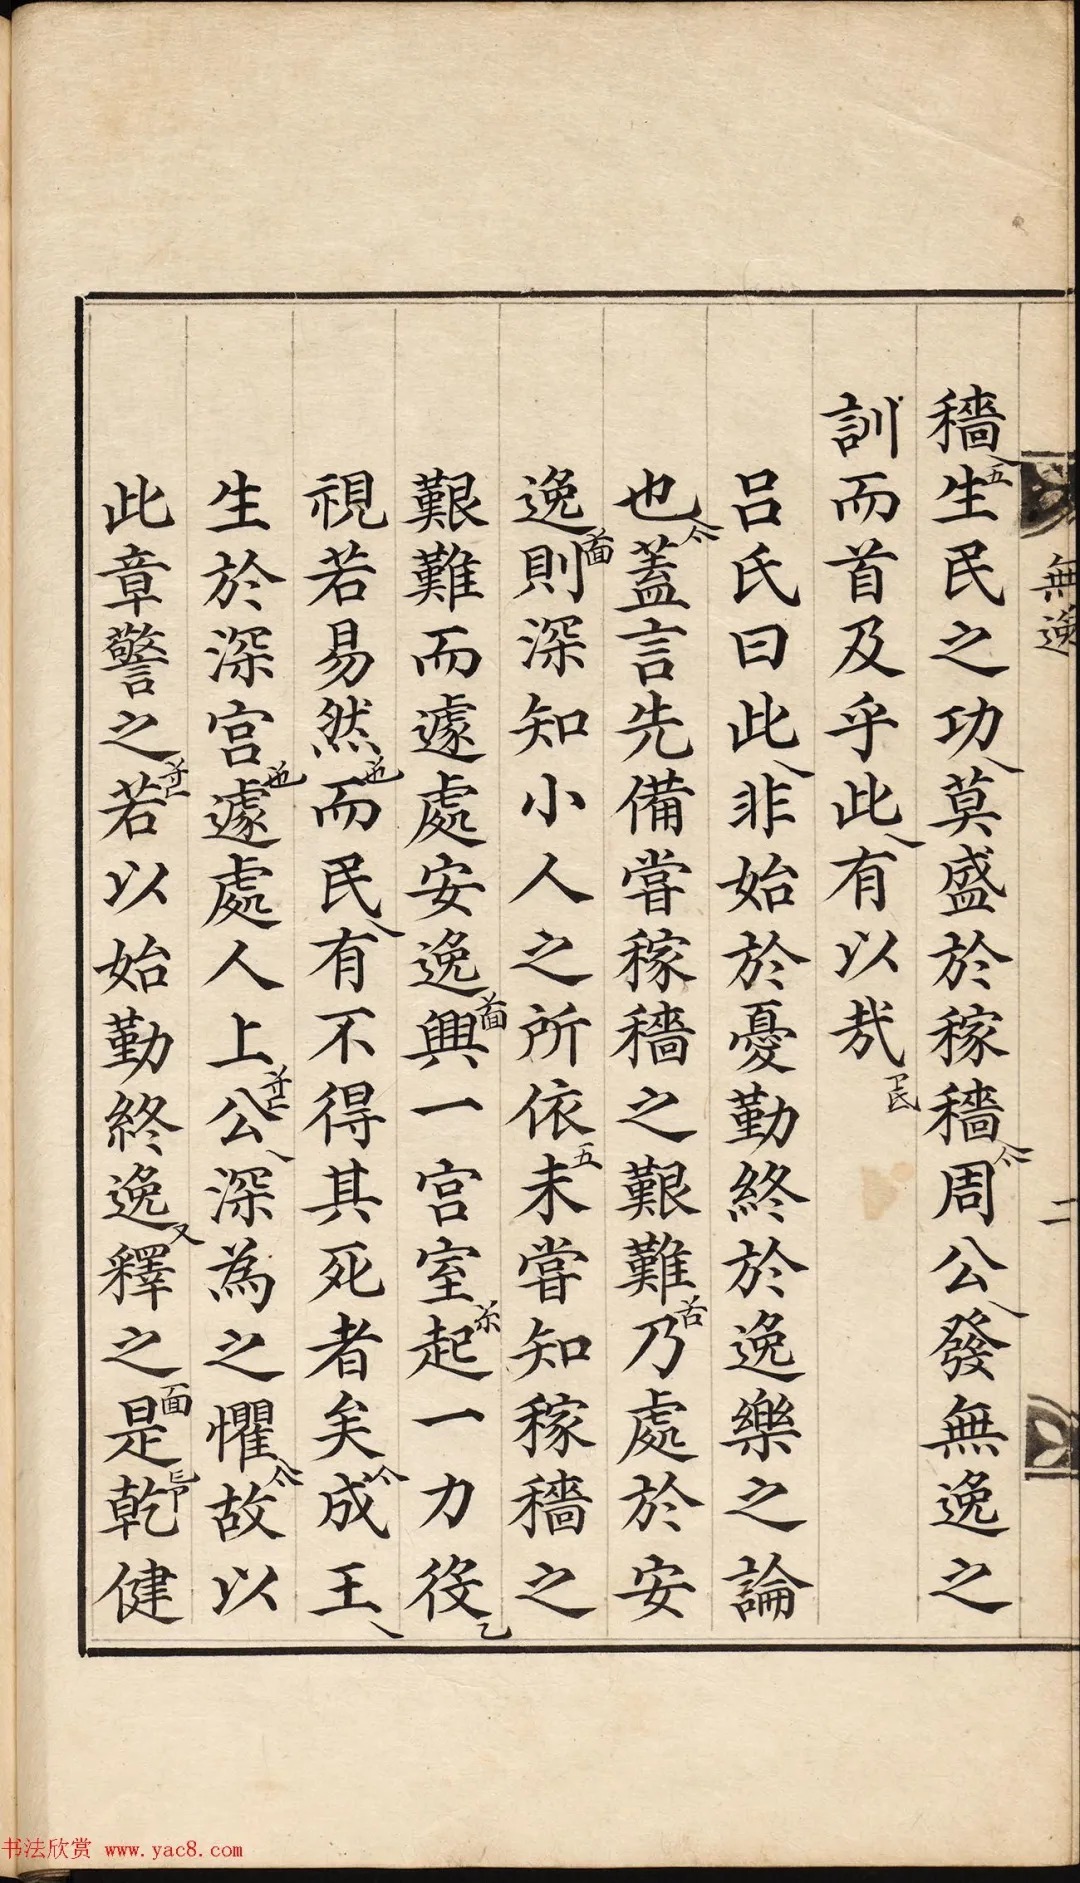 無逸
二
穡生民之功莫盛於稼穡周公發無逸之
訓而首及乎此有以哉
呂氏曰此非始於憂勤終於逸樂之論
也蓋言先備嘗稼穡之艱難乃處於安
逸則深知小人之所依未嘗知稼穡之
艱難而遽處安逸興一宮室起一力役
視若易然而民有不得其死者矣成王
生於深宮遽處人上公深為之懼故以
此章警之若以始勤終逸釋之是乾健
书法欣赏 www.yac8.com